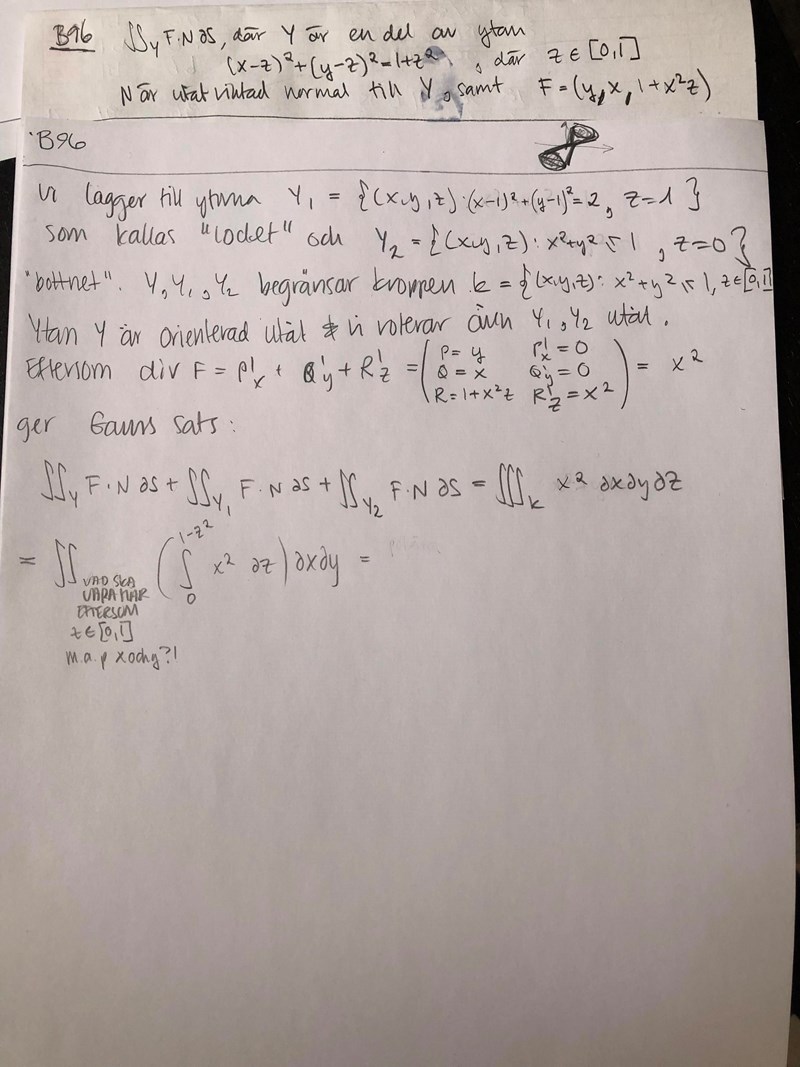 B96 ∬_Y F·N ∂S, där Y är en del av ytan
(x-z)²+(y-z)²=1+z², där z∈[0,1]
N är utåtriktad normal till Y, samt F=(y,x,1+x²z)
B96
Vi lägger till ytorna Y₁ = {(x,y,z):(x-1)²+(y-1)²=2, z=1}
som kallas "locket" och Y₂ = {(x,y,z): x²+y² ≤ 1, z=0}
"bottnet". Y,Y₁,Y₂ begränsar kroppen k = {(x,y,z): x²+y² ≤ 1, z∈[0,1]
Ytan Y är orienterad utåt vi roterar även Y₁,Y₂ utåt.
Eftersom div F = P'x + Q'y + R'z = (P=y P'x=0
Q=x Q'y=0 ) = x²
R=1+x²z R'z=x²
ger Gauss sats:
∬_Y F·N ∂S + ∬_Y₁ F·N ∂S + ∬_Y₂ F·N ∂S = ∭_k x² ∂x∂y∂z
= ∬ (∫₀^{1-z²} x² ∂z) ∂x∂y =
VAD SKA
VARA HÄR
EFTERSOM
z∈[0,1]
m.a.p x och y?!